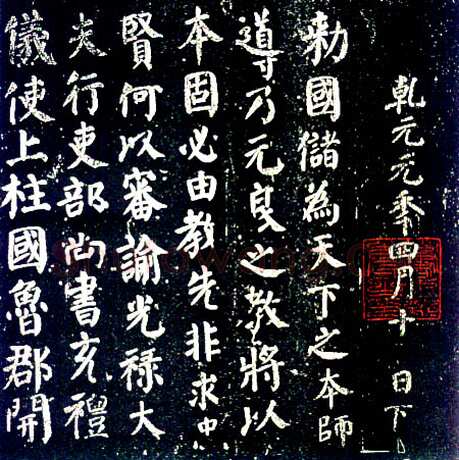 乾元元年四月十 日下
勅國儲為天下之本師
導乃元良之教將以
本固必由教先非求忠
賢何以審諭光祿大
夫行吏部尚書充禮
儀使上柱國魯郡開